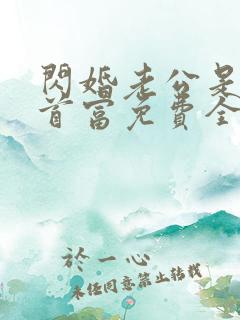 閃婚老公是
首富免費全
於一心
未经同意禁止转载